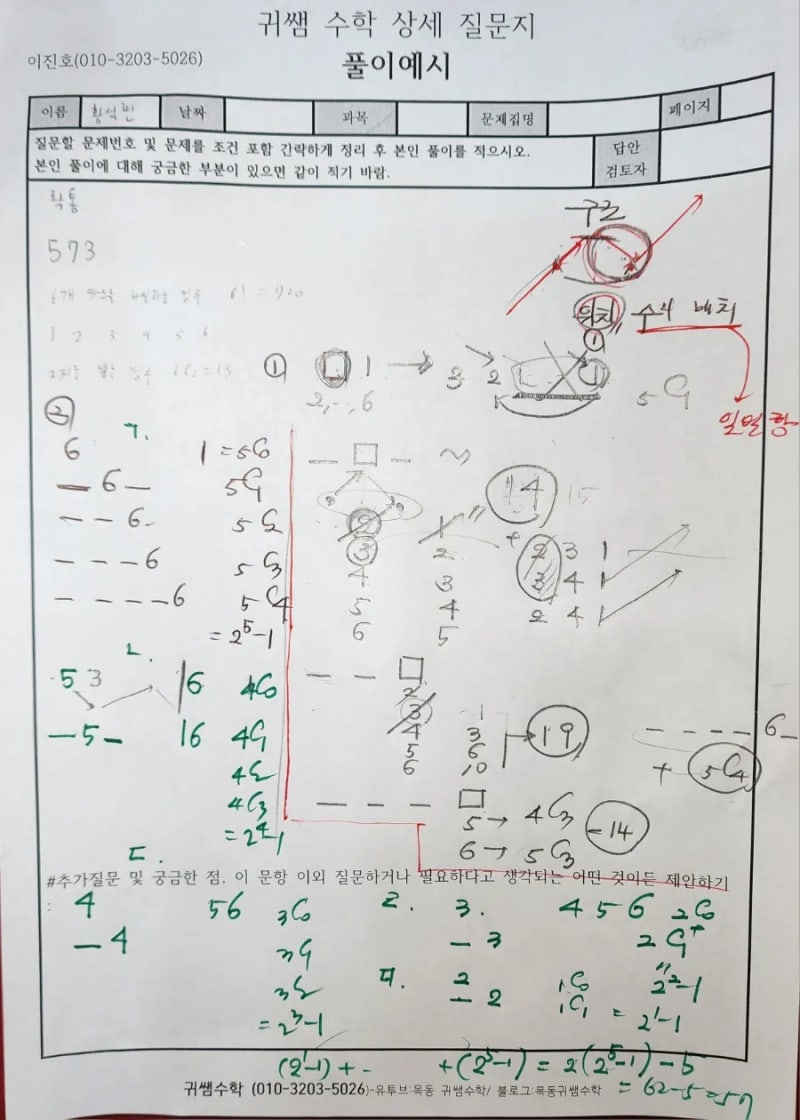 귀쌤 수학 상세 질문지
이진호(010-3203-5026)
풀이예시
이름 날짜 과목 문제집명 페이지
질문할 문제번호 및 문제를 조건 포함 간략하게 정리 후 본인 풀이를 적으시오.
본인 풀이에 대해 궁금한 부분이 있으면 같이 적기 바람.
답안
검토자
확통
573
구조
6! = 720
위치 수의 배치
1 2 3 4 5 6
①
① □ 1 → 3 2 ①
2, --, 6
5C1
일열항
②
ㄱ.
6 1 = 5C0
— 6 — 5C1
— — 6 - 5C2
— — — 6 5C3
— — — — 6 5C4
= 2^5-1
— □ — ~
14 15
② 1
③ 2
4 3
5 4
6 5
+ 2 3 1
3 4 1
2 4 1
ㄴ.
5 3 16 4C0
— 5 — 16 4C1
4C2
4C3
= 2^4-1
— — □
2
3 1
4 3
5 6
6 10
19
— — — — 6 -
+ 5C4
— — — □
5 → 4C3
6 → 5C3
= 14
ㄷ.
#추가질문 및 궁금한 점. 이 문항 이외 질문하거나 필요하다고 생각되는 어떤 것이든 제안하기
:
4 56 3C0
— 4 3C1
3C2
= 2^3-1
ㄹ. 3. 4 5 6 2C0
— 3 2C1
2^2-1
ㅁ. 2 1C0
— 2 1C1
= 2^1-1
(2^1-1) + - +(2^5-1) = 2(2^5-1) - 5
= 62-5=57
귀쌤수학 (010-3203-5026)-유투브:목동 귀쌤수학/ 블로그:목동귀쌤수학